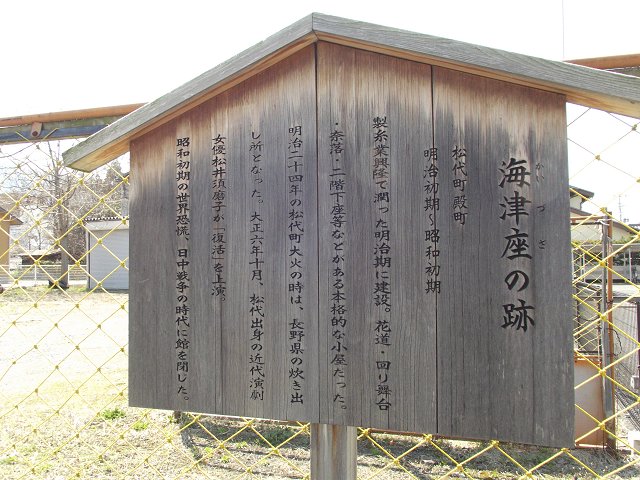 海津座の跡
かいづざ
松代町 殿町
明治初期~昭和初期
製糸業興隆で潤った明治期に建設。花道・回り舞台
・奈落・二階下座等などがある本格的な小屋だった。
明治二十四年の松代町大火の時は、長野県の炊き出
し所となった。大正六年十月、松代出身の近代演劇
女優松井須磨子が「復活」を上演。
昭和初期の世界恐慌、日中戦争の時代に館を閉じた。